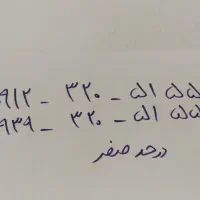 ۹۱۲ - ۳۲۰ - ۵۱ ۵۵
۹۳۹ - ۳۲۰ - ۵۱ ۵۵
در حد صفر